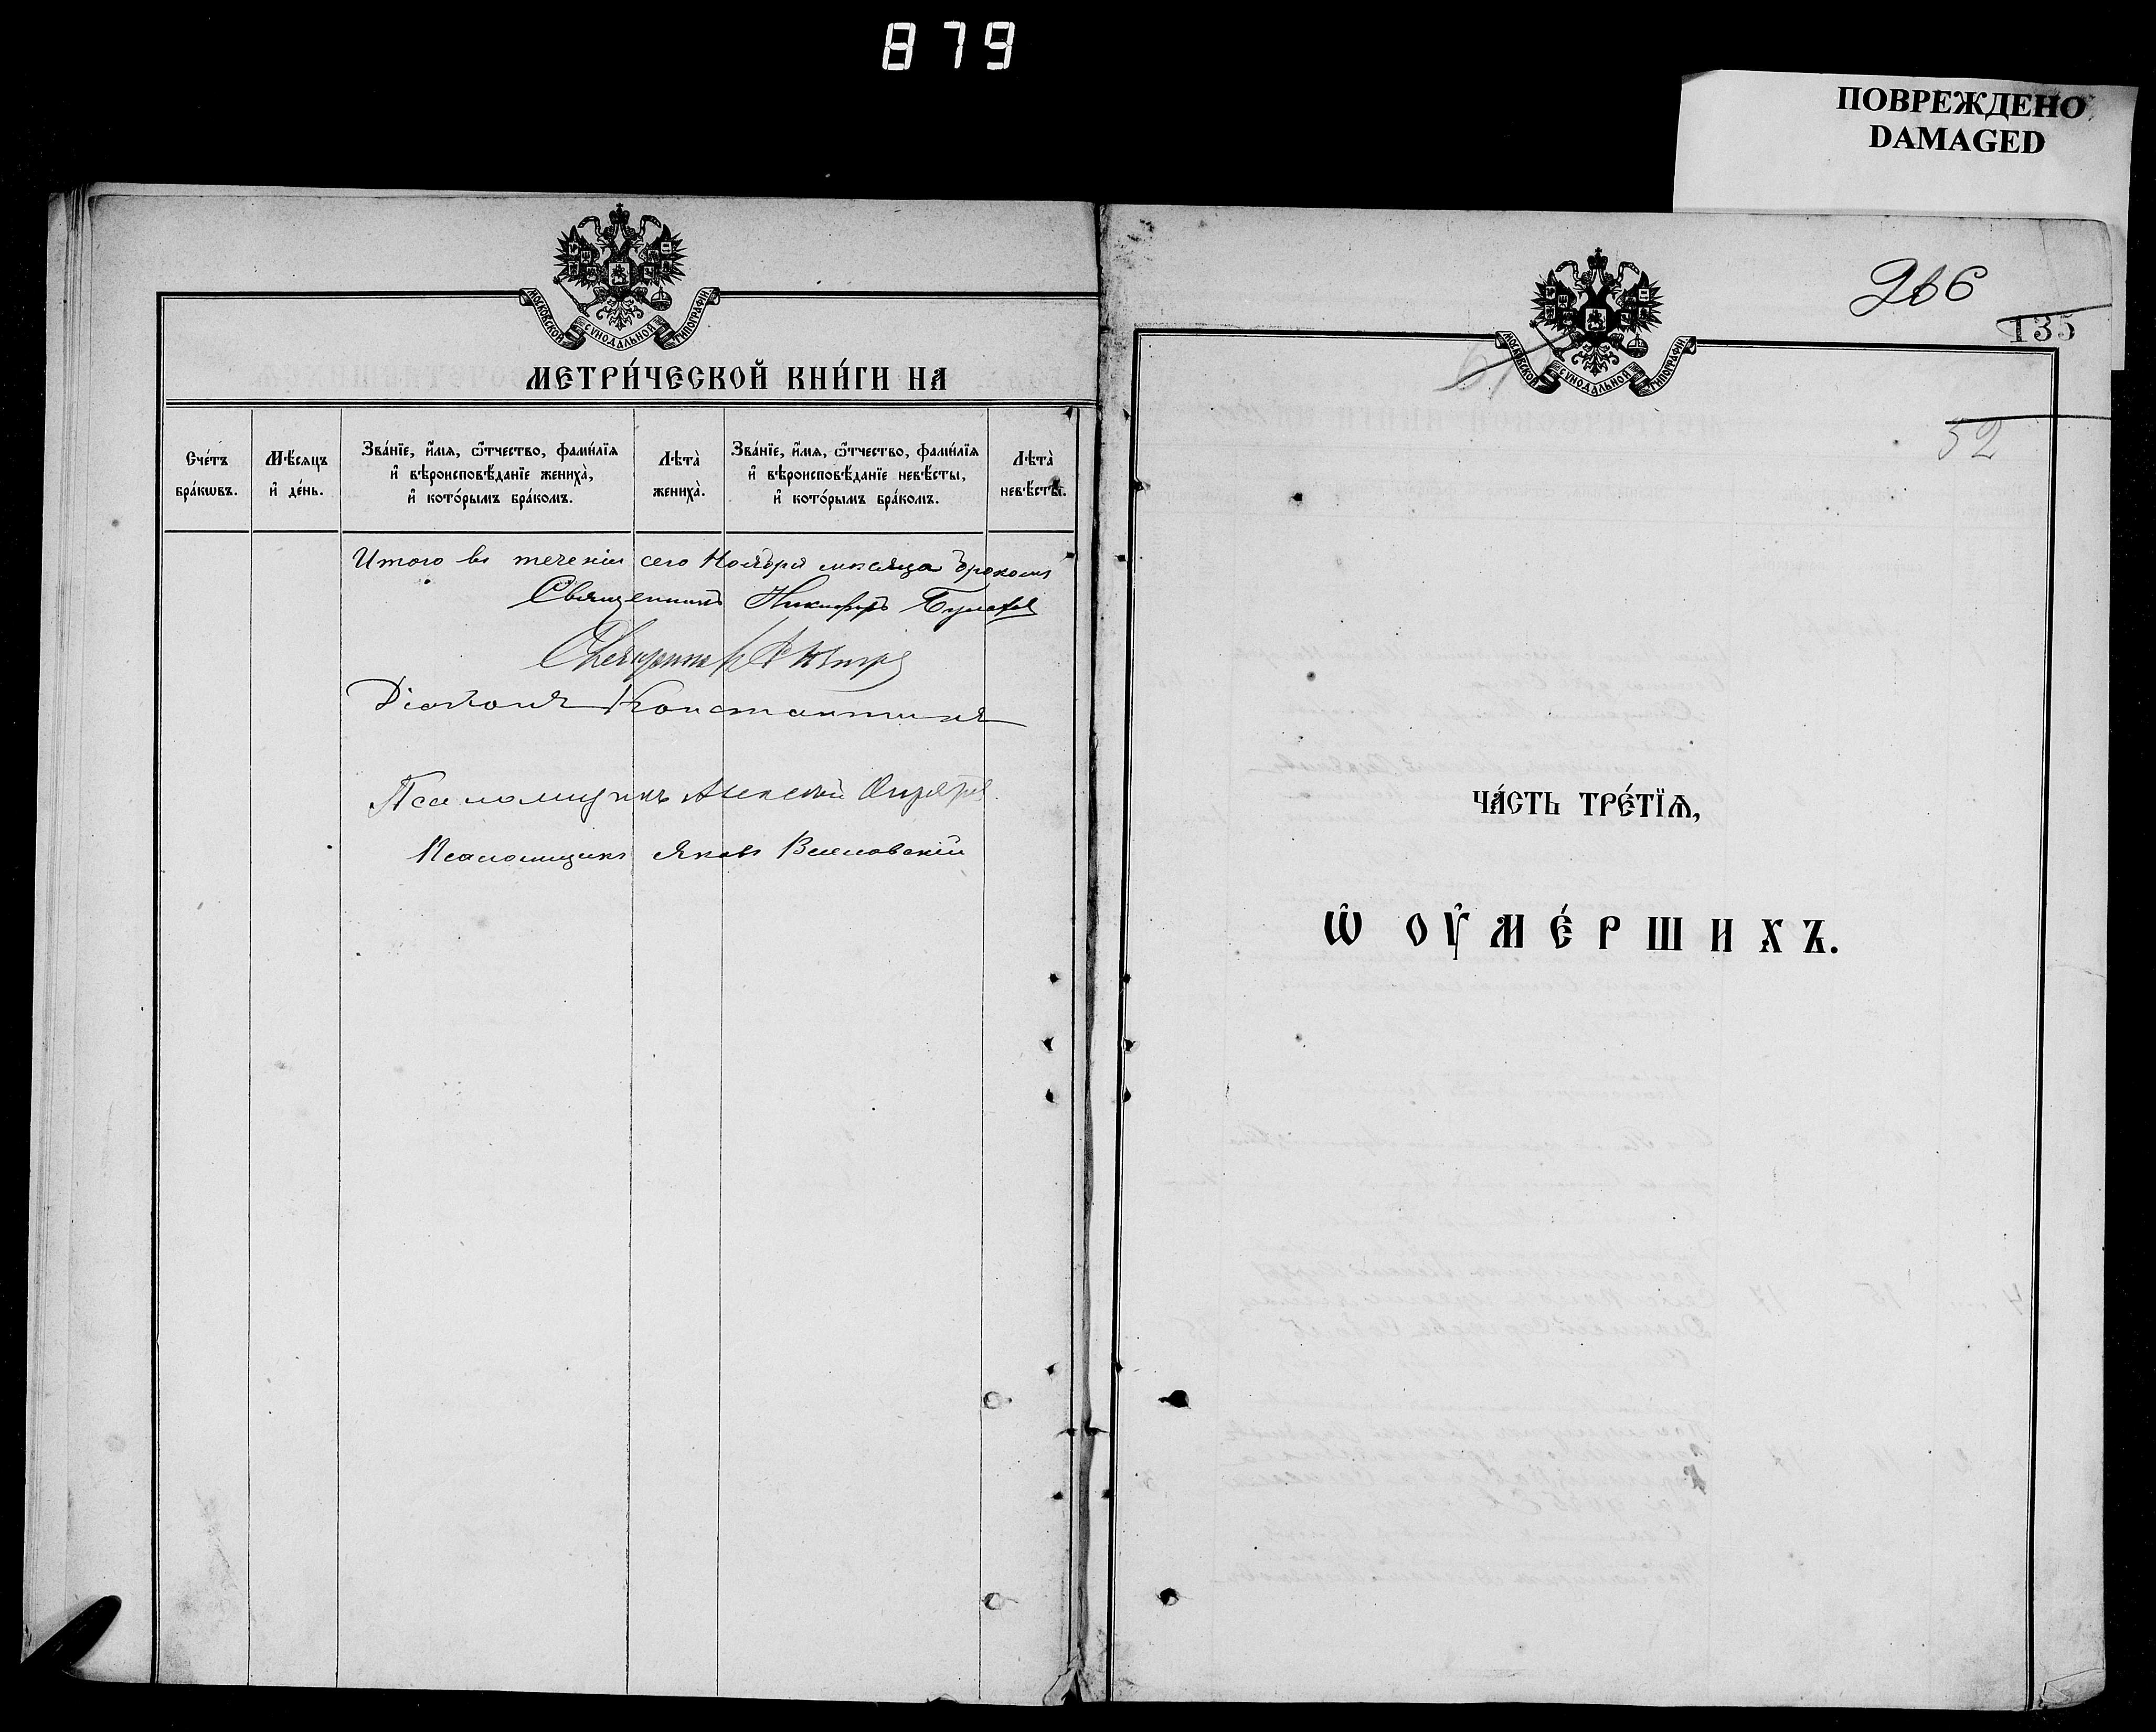 879
ПОВРЕЖДЕНО
DAMAGED
МОСКОВСКОЙ СѴНОДАЛЬНОЙ ТИПОГРАФІИ
МЕТРИ́ЧЕСКОЙ КНИ́ГИ НА
Сче́тъ бра́кѡвъ.
Мѣ́сяцъ и҆ де́нь.
Зва́нїе, и҆́мя, ѻ҆́тчество, фами́лїя и҆ вѣроисповѣ́данїе жениха̀, и҆ кото́рымъ бра́комъ.
Лѣта̀ жениха̀.
Зва́нїе, и҆́мя, ѻ҆́тчество, фами́лїя и҆ вѣроисповѣ́данїе невѣ́сты, и҆ кото́рымъ бра́комъ.
Лѣта̀ невѣ́сты.
Итого въ теченіи сего Ноября мѣсяца
Священникъ Никифоръ
Священникъ
Діаконъ Константинъ
Псаломщикъ Алексѣй
Псаломщикъ Яковъ
МОСКОВСКОЙ СѴНОДАЛЬНОЙ ТИПОГРАФІИ
266
135
52
ЧА́СТЬ ТРЕ́ТЇѦ,
Ѡ҆ ОУ҆МЕ́РШИХЪ.